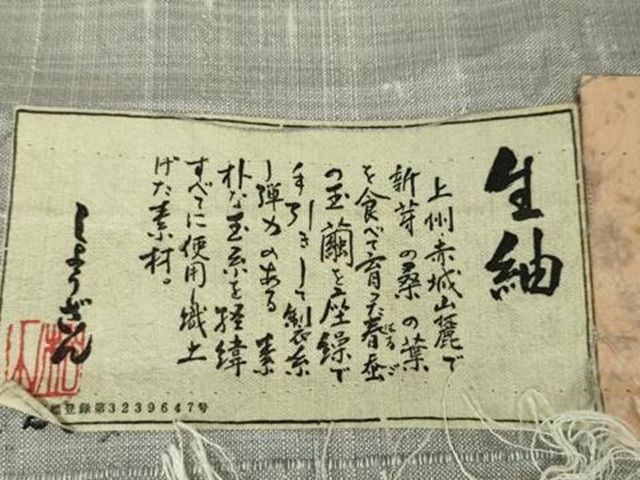 生紬
上州・赤城山麓で
新芽の桑の葉
を食べて育った春蚕
はるご
の玉繭を座繰で
手引きして製糸
し弾力のある素
朴な玉糸を経緯
すべてに使用し織上
げた素材。
しょうざん
標登録第3239647号